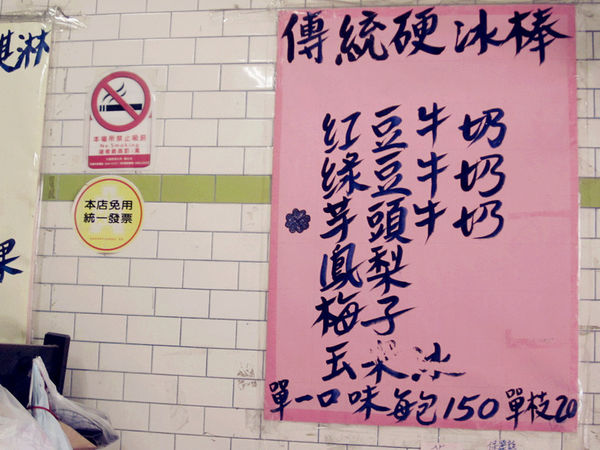 傳統硬冰棒
紅豆牛奶
綠豆牛奶
芋頭牛奶
鳳梨
梅子
玉米冰
單一口味每包150單枝20
淇淋
果
本場所禁止吸菸
No Smoking
本店免用
統一發票